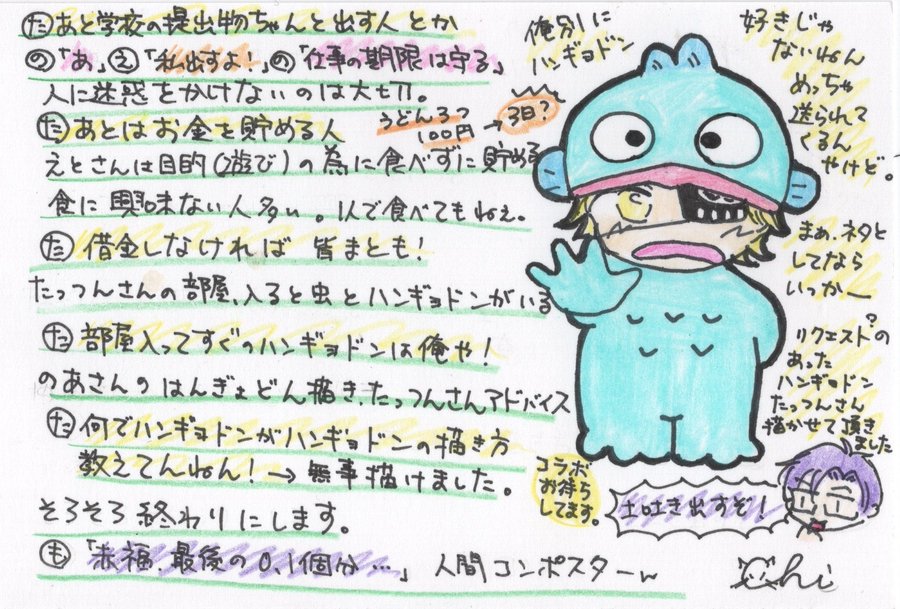 ㋟あと学校の提出物ちゃんと出す人とか
の「あ」え「私出すよ!」の「仕事の期限は守る」
人に迷惑をかけないのは大切。
㋟あとはお金を貯める人
うどん3つ
100円→3日?
えとさんは目的(遊び)の為に食べずに貯める
食に興味ない人多い。1人で食べてもねぇ。
㋟借金しなければ皆まとも!
たっつんさんの部屋、入ると虫とハンギョドンがいる
㋟部屋入ってすぐのハンギョドンは俺や!
のあさんのはんぎょどん描き、たっつんさんアドバイス
㋟何でハンギョドンがハンギョドンの描き方
教えてんねん!→無事描けました。
そろそろ終わりにします。
㋲「赤福、最後の0.1個分…」 人間コンポスターw
俺別に
ハンギョドン
好きじゃ
ないねん
めっちゃ
送られて
くるん
やけど。
まぁ、ネタと
してなら
いっかー
リクエスト?の
あった
ハンギョドン
たっつんさん
描かせて頂き
ました
コラボ
お待ち
してます。
土吐き出すぞ!
Chi